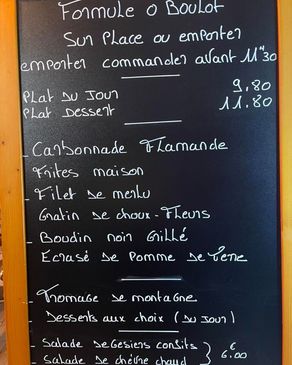 Formule o Boulot
Sur Place ou emporter
emporter commander avant 11H30
Plat Du Jour 9.80
Plat Dessert 11.80
- Carbonnade Flamande
Frites maison
- Filet de merlu
Gratin de choux-Fleurs
- Boudin noir Grillé
Ecrasé de Pomme de Terre
- Fromage de montagne
Desserts aux choix (Du Jour)
- Salade de Gesiers confits
- Salade de chèvre chaud } 6.00